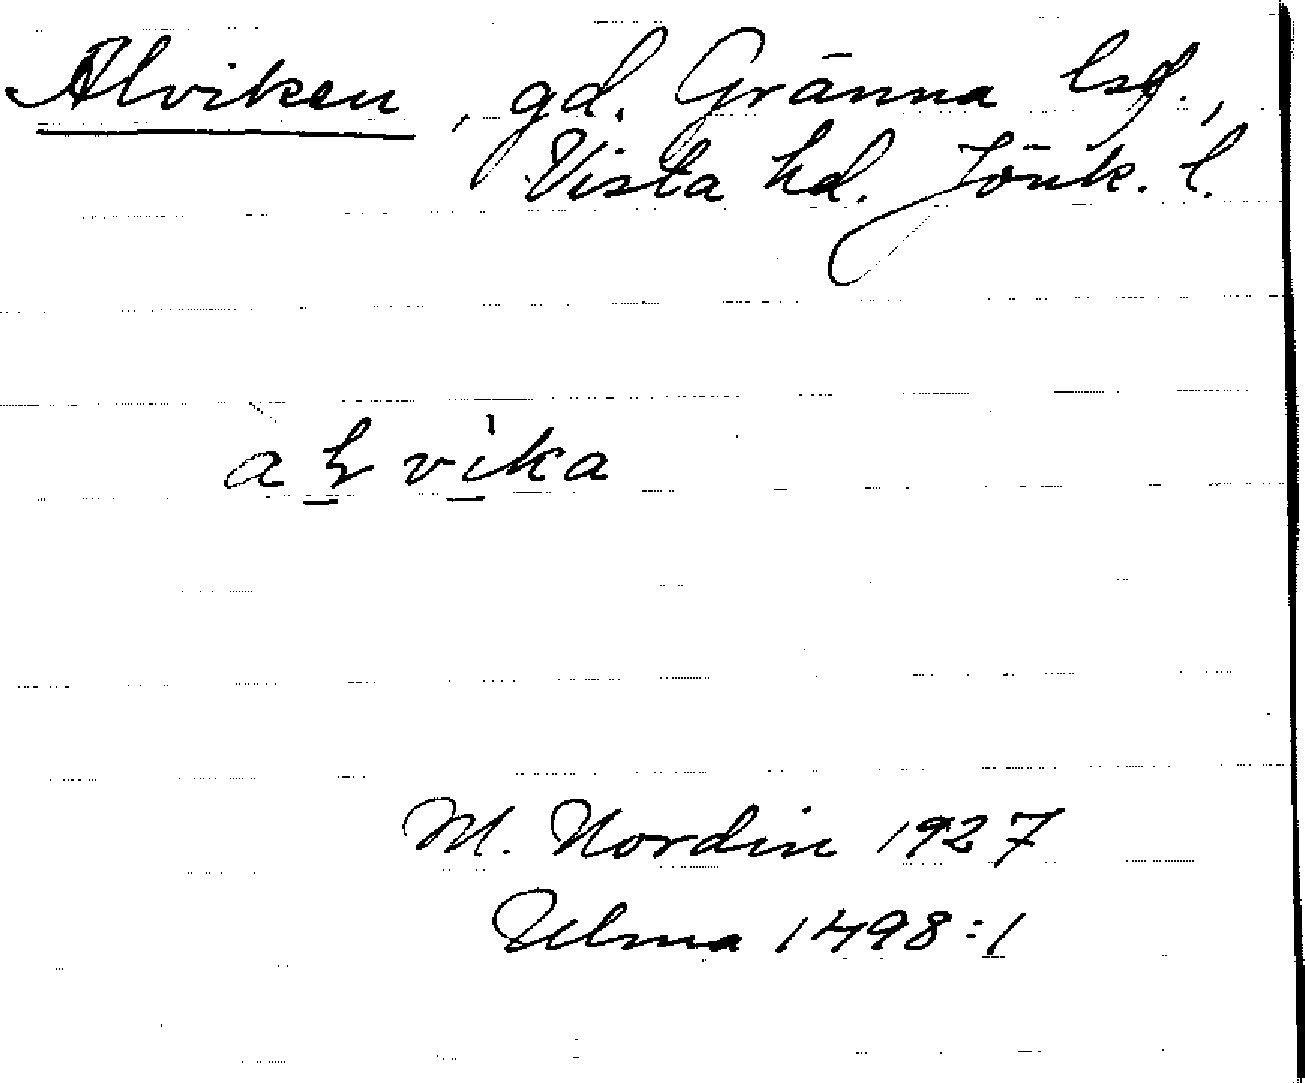 Alviken, gd. Gränna lsf.,
Vista hd. Jönk. l.
aɫvika
M. Nordin 1927
Ulma 1498:1